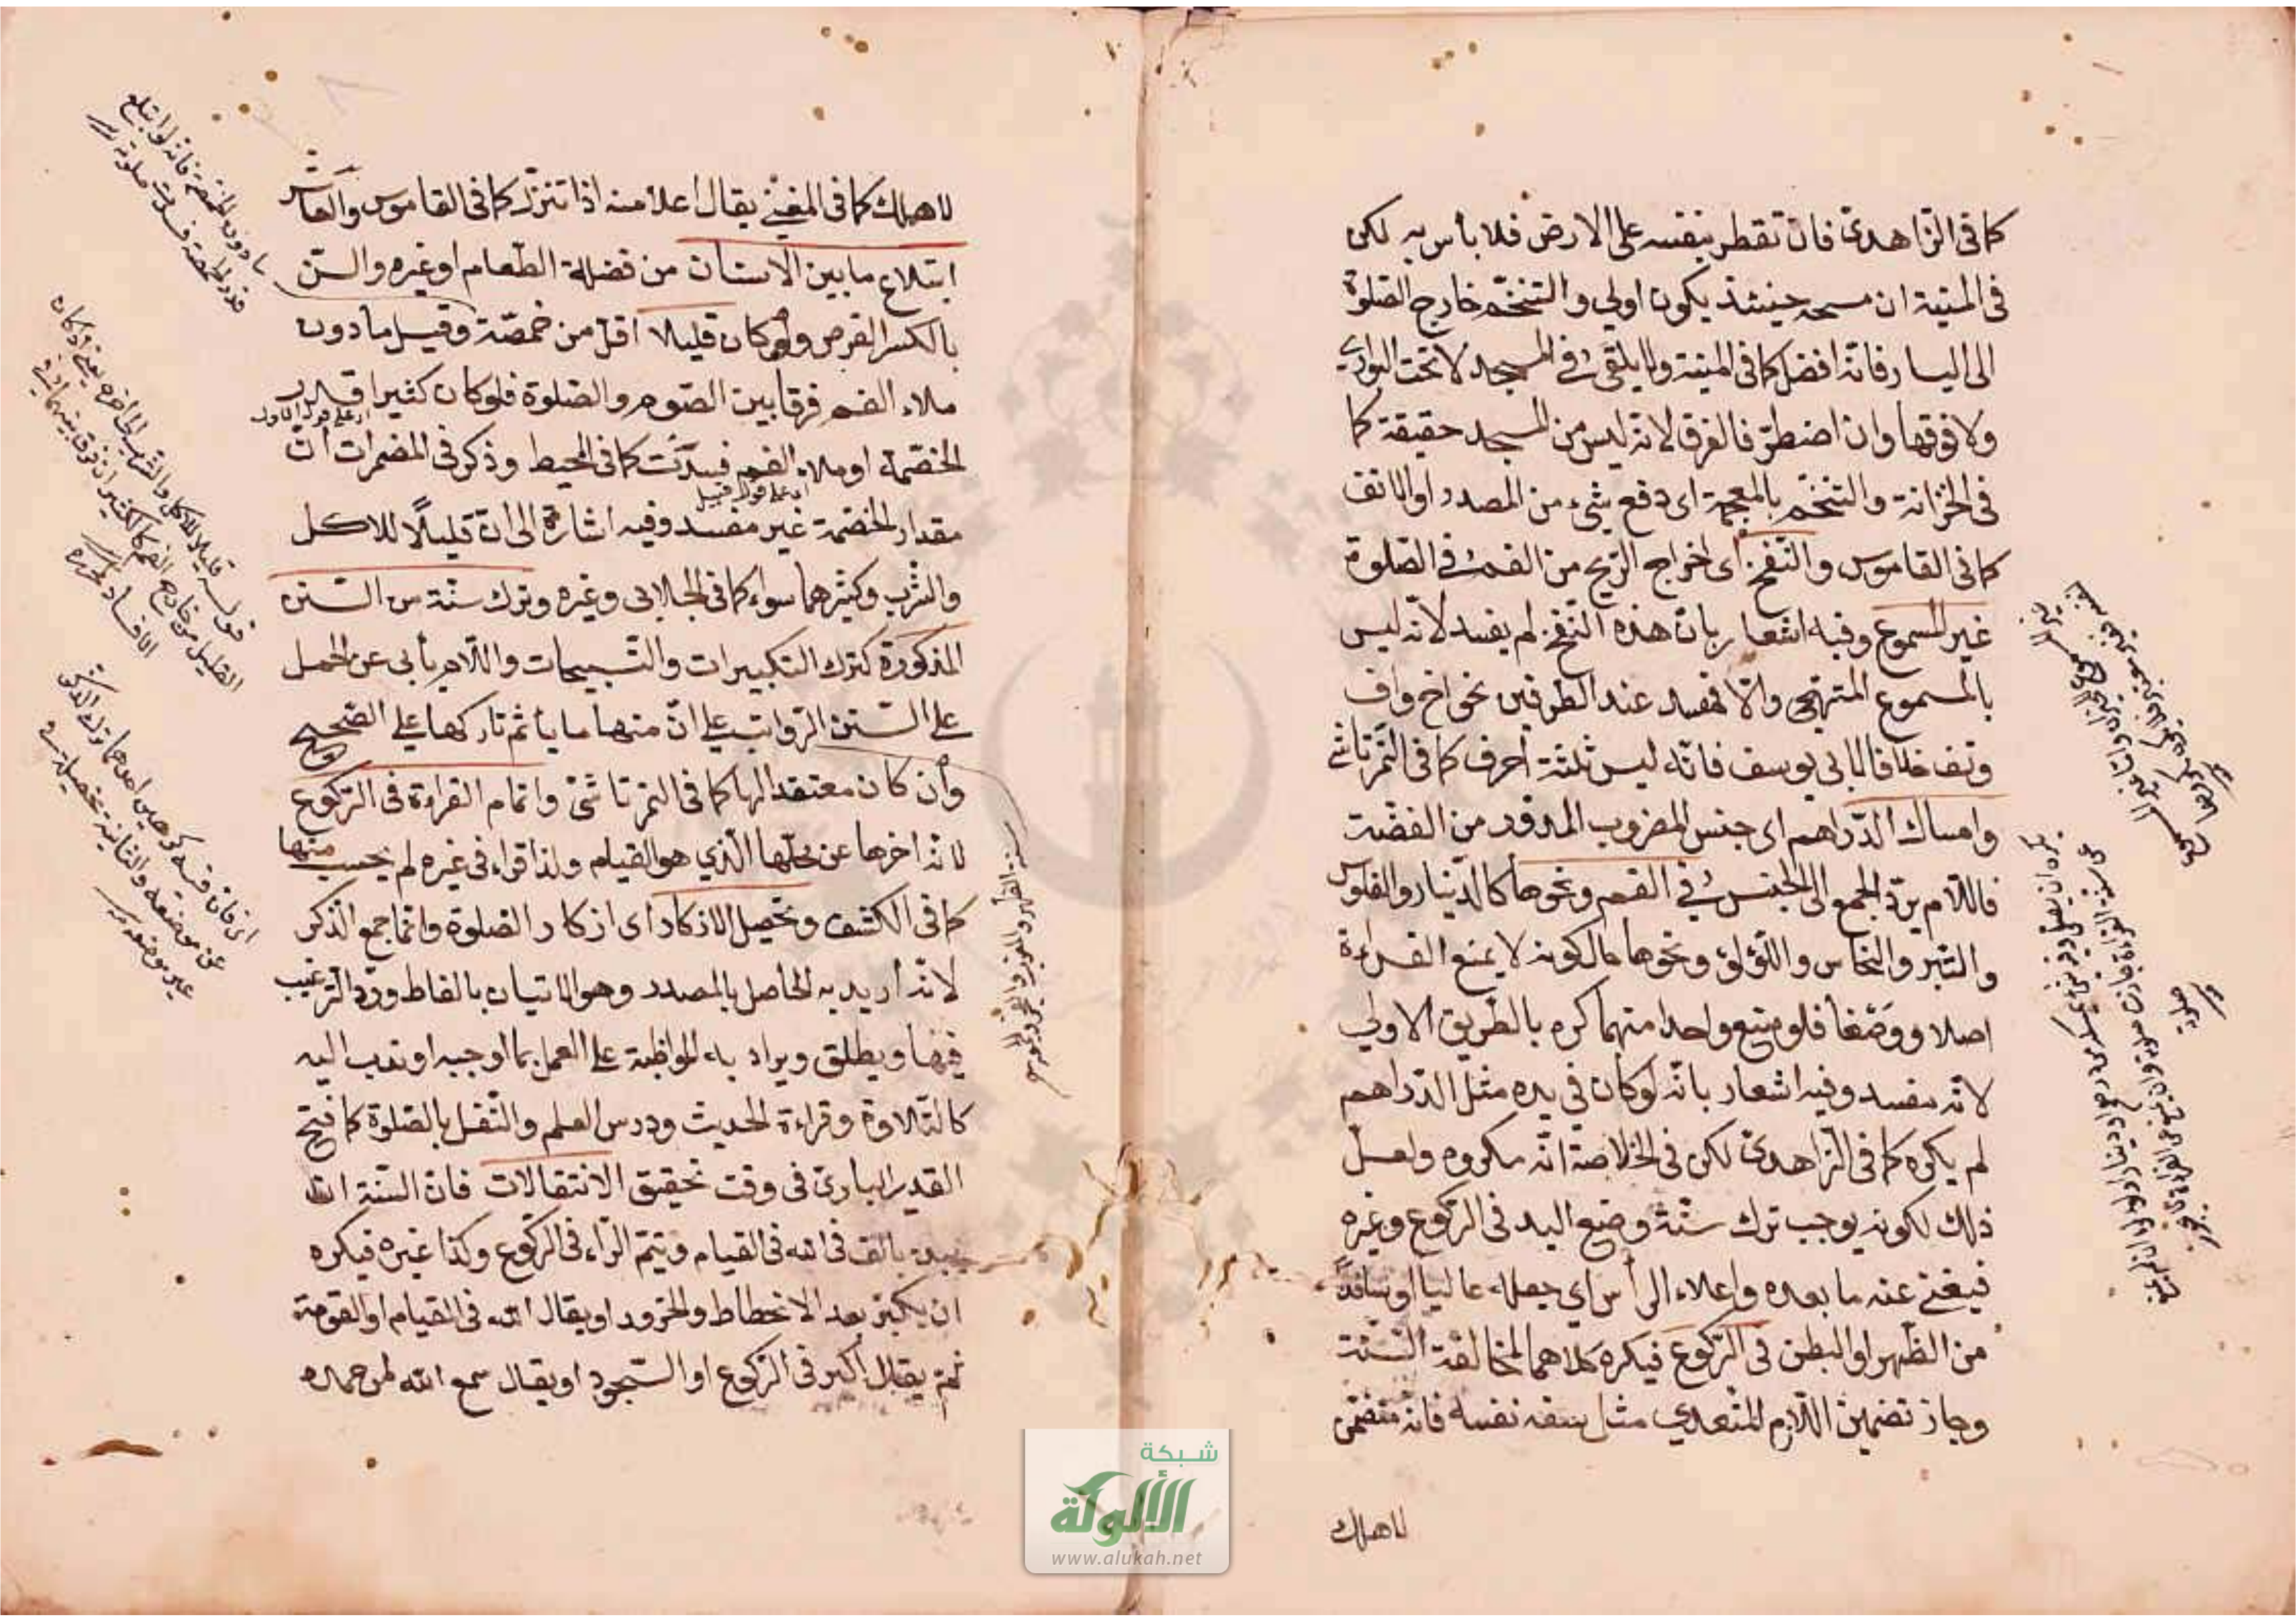 كما فى الزاهدى فان تقطر بنفسه على الارض فلا بأس به لكن
فى المنية ان مسحه حينئذ يكون اولى والتنخم خارج الصلوة
الى اليسار فانه افضل كما فى المنية ولا يلقى فى المسجد لا تحت البوارى
ولا فوقها وان اضطر فالغرق لانه ليس من المسجد حقيقة كما
فى الخزانة والتنخم بالمعجمة اى دفع شىء من المصدر او الانف
كما فى القاموس والنفخ اى اخراج الريح من الفم فى الصلوة
غير المسموع وفيه اشعار بان هذه النفخ لم يفسد لانه ليس
بالمسموع المتهجى والا فمفسد عند الطرفين نحو اخ واف
وتف خلافا لابى يوسف فانه ليس ثلثة احرف كما فى التمرتاشى
وامساك الدراهم اى جنس المضروب المدور من الفضة
فاللام يرد الجمع الى الجنس فى الفم ونحوها كالدينار والفلوس
والتبر والنحاس واللؤلؤ ونحوها مالكونه لا يمنع القراءة
اصلا ووضعا فلو منع واحدا منهما كره بالطريق الاولى
لانه مفسد وفيه اشعار بانه لو كان فى يده مثل الدراهم
لم يكره كما فى الزاهدى لكن فى الخلاصة انه مكروه ولعل
ذلك لكونه يوجب ترك سنة وضع اليد فى الركوع وغيره
فيغنى عنه ما بعده واعلاء الرأس اى جعله عاليا او سافلا
من الظهر او البطن فى الركوع فيكره كلاهما لمخالفة السنة
وجاز تضمين اللازم للمتعدى مثل سفه نفسه فانه متضمن
لاهلك
لاهلك كما فى المغنى يقال اعلا منه اذا تنزل كما فى القاموس والعاشر
ابتلاع ما بين الاسنان من فضلة الطعام او غيره والسن
بالكسر الضرس ولو كان قليلا اقل من حمصة وقيل ما دون
ملاء الفم فرقا بين الصوم والصلوة فلو كان كثيرا قدر
الحمصة او ملاء الفم فسدت كما فى المحيط وذكر فى المضمرات ان
مقدار الحمصة غير مفسد وفيه اشارة الى ان قليلا للاكل
والشرب وكثيرهما سواء كما فى الجلابى وغيره وترك سنة من السنن
المذكورة كترك التكبيرات والتسبيحات واللام يأبى عن الحمل
على السنن الرواتب على ان منها ما يأثم تاركها على الصحيح
وان كان معتقدا لها كما فى التمرتاشى واتمام القراءة فى الركوع
لانه اخرها عن محلها الذي هو القيام ولذا قراء فى غيره لم يحسب منها
كما فى الكشف وتحصيل الاذكار اى اذكار الصلوة وانما جمع الذكر
لانه اريد به الحاصل بالمصدر وهو الاتيان بالفاظ ورد الترغيب
فيها ويطلق ويراد به المواظبة على العمل بما اوجبه او ندب اليه
كالتلاوة وقراءة الحديث ودرس العلم والتنفل بالصلوة كما فتح
القدير البارى فى وقت تحقيق الانتقالات فان السنة ان
يبدء بالف فى الله فى القيام ويتم الراء فى الركوع وكذا غيره فيكره
ان يكبر بعد الانحطاط والخرور او يقال الله فى القيام او القومة
ثم يقال اكبر فى الركوع او السجود او يقال سمع الله لمن حمده
شبكة
الألوكة
www.alukah.net